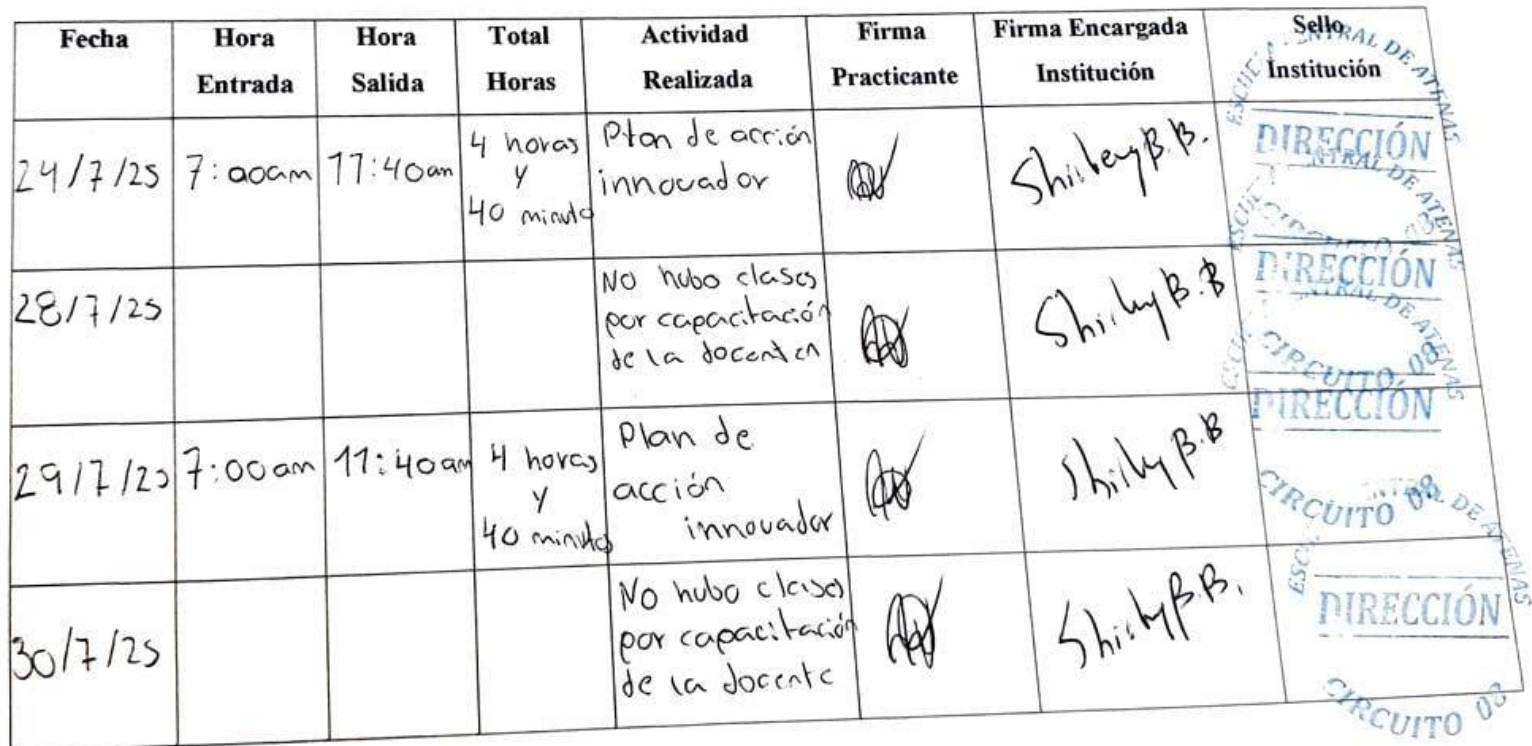 Fecha
Hora
Entrada
Hora
Salida
Total
Horas
Actividad
Realizada
Firma
Practicante
Firma Encargada
Institución
Sello
Institución
24/7/25
7:00am
11:40am
4 horas
y
40 minutos
Plan de acción
innovador
Shirley B.B.
DIRECCIÓN
28/7/25
No hubo clases
por capacitación
de la docente
Shirley B.B
DIRECCIÓN
CIRCUITO 08
29/7/25
7:00am
11:40am
4 horas
y
40 minutos
Plan de
acción
innovador
Shirley B.B
DIRECCIÓN
CIRCUITO 08
30/7/25
No hubo clases
por capacitación
de la docente
Shirley B.B.
DIRECCIÓN
CIRCUITO 08